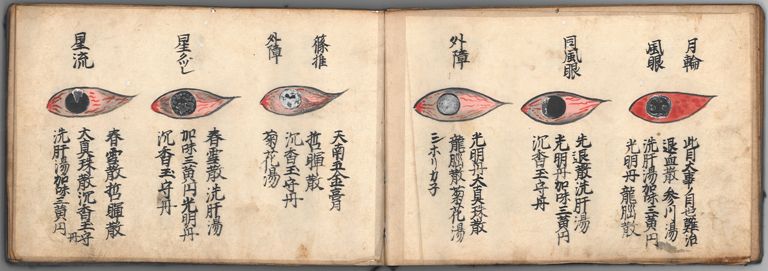 月輪
風眼
此目大事ノ目也難治
退血散 参川湯
洗肝湯加味三黄円
光明丹 龍脳散
同風眼
先退散洗肝湯
光明丹加味三黄円
沉香玉守丹
外障
光明丹大真珠散
龍脳散菊花湯
篠推
外障
天南五金膏
沉香玉守丹
菊花湯
春雲散 洗肝湯
加味三黄円光明丹
沉香玉守丹
星流
大真珠散沉香玉守丹
洗肝湯加味三黄円